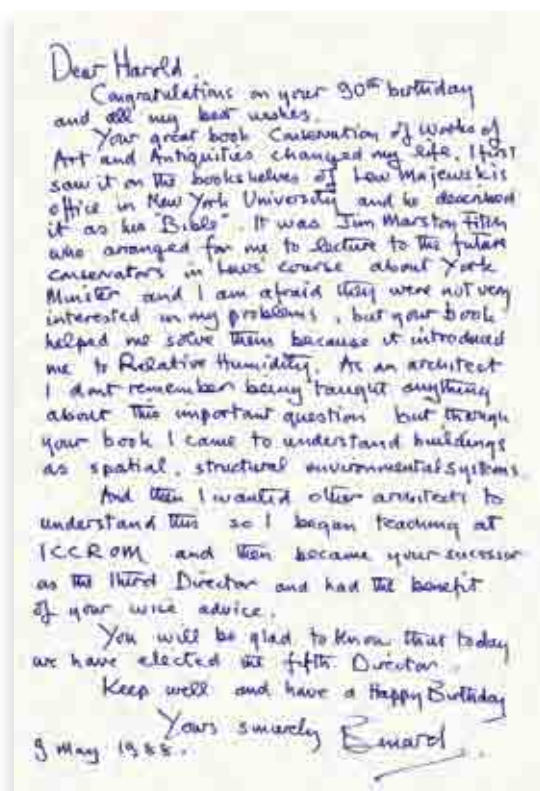 Dear Harold,
Congratulations on your 90th birthday
and all my best wishes.
Your great book Conservation of Works of
Art and Antiquities changed my life. I first
saw it on the bookshelves of Lew Majewskis
office in New York University and he described
it as his "Bible". It was Jim Marston Fitch
who arranged for me to lecture to the future
conservators in Lews' course about York
Minster and I am afraid they were not very
interested in my problems, but your book
helped me solve them because it introduced
me to Relative Humidity. As an architect
I dont remember being taught anything
about this important question but through
your book I came to understand buildings
as spatial, structural environmental systems.
And then I wanted other architects to
understand this so I began teaching at
ICCROM and then became your successor
as the third Director and had the benefit
of your wise advice.
You will be glad to know that today
we have elected the fifth Director.
Keep well and have a Happy Birthday
Yours sincerely Bernard.
9 May 1988.